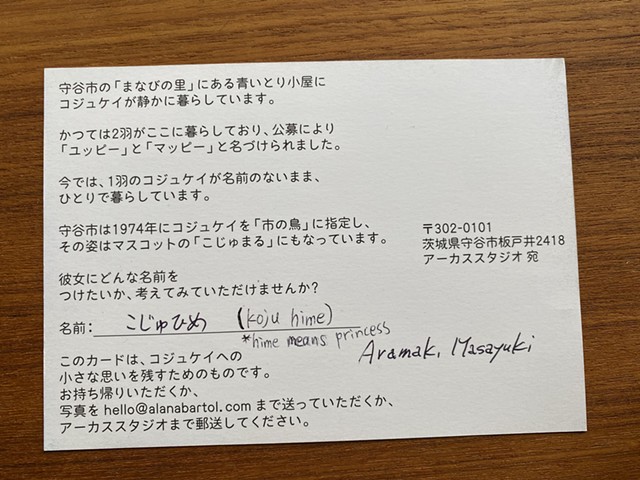 守谷市の「まなびの里」にある青いとり小屋に
コジュケイが静かに暮らしています。
かつては2羽がここに暮らしており、公募により
「ユッピー」と「マッピー」と名づけられました。
今では、1羽のコジュケイが名前のないまま、
ひとりで暮らしています。
守谷市は1974年にコジュケイを「市の鳥」に指定し、
その姿はマスコットの「こじゅまる」にもなっています。
〒302-0101
茨城県守谷市板戸井2418
アーカススタジオ 宛
彼女にどんな名前を
つけたいか、考えてみていただけませんか?
名前: こじゅひめ (koju hime)
*hime means princess
Aramaki Masayuki
このカードは、コジュケイへの
小さな思いを残すためのものです。
お持ち帰りいただくか、
写真を hello@alanabartol.com まで送っていただくか、
アーカススタジオまで郵送してください。